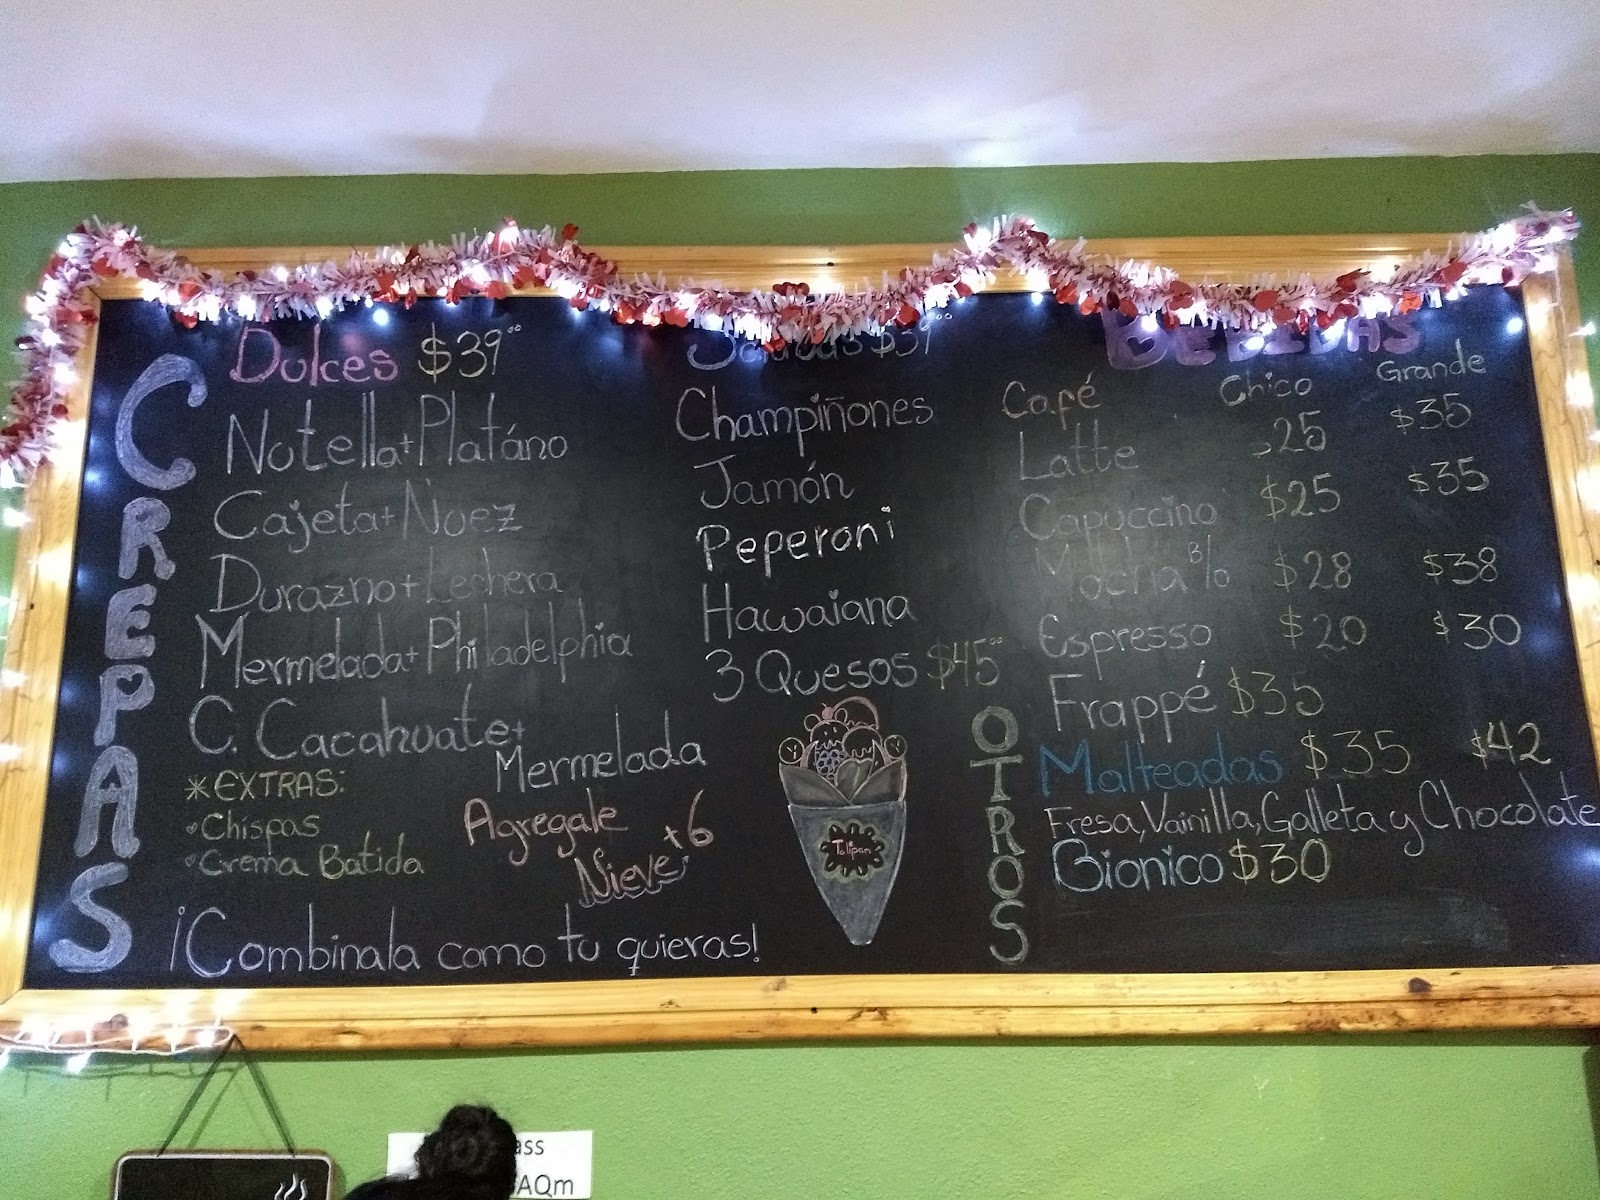 CREPAS
Dulces $39.00
Nutella+Platáno
Cajeta+Nuez
Durazno+Lechera
Mermelada+Philadelphia
C. Cacahuate+
Mermelada
*EXTRAS:
Chispas
Crema Batida
Agregale
Nieve +6
¡Combinala como tu quieras!
Saladas $39.00
Champiñones
Jamón
Peperoni
Hawaiana
3 Quesos $45.00
Tulipan
BEBIDAS
Café Chico Grande
Latte $25 $35
Capuccino $25 $35
Mocha B/ $28 $38
Espresso $20 $30
Frappé $35
OTROS
Malteadas $35 $42
Fresa, Vainilla, Galleta y Chocolate
Bionico $30
ass
AQm